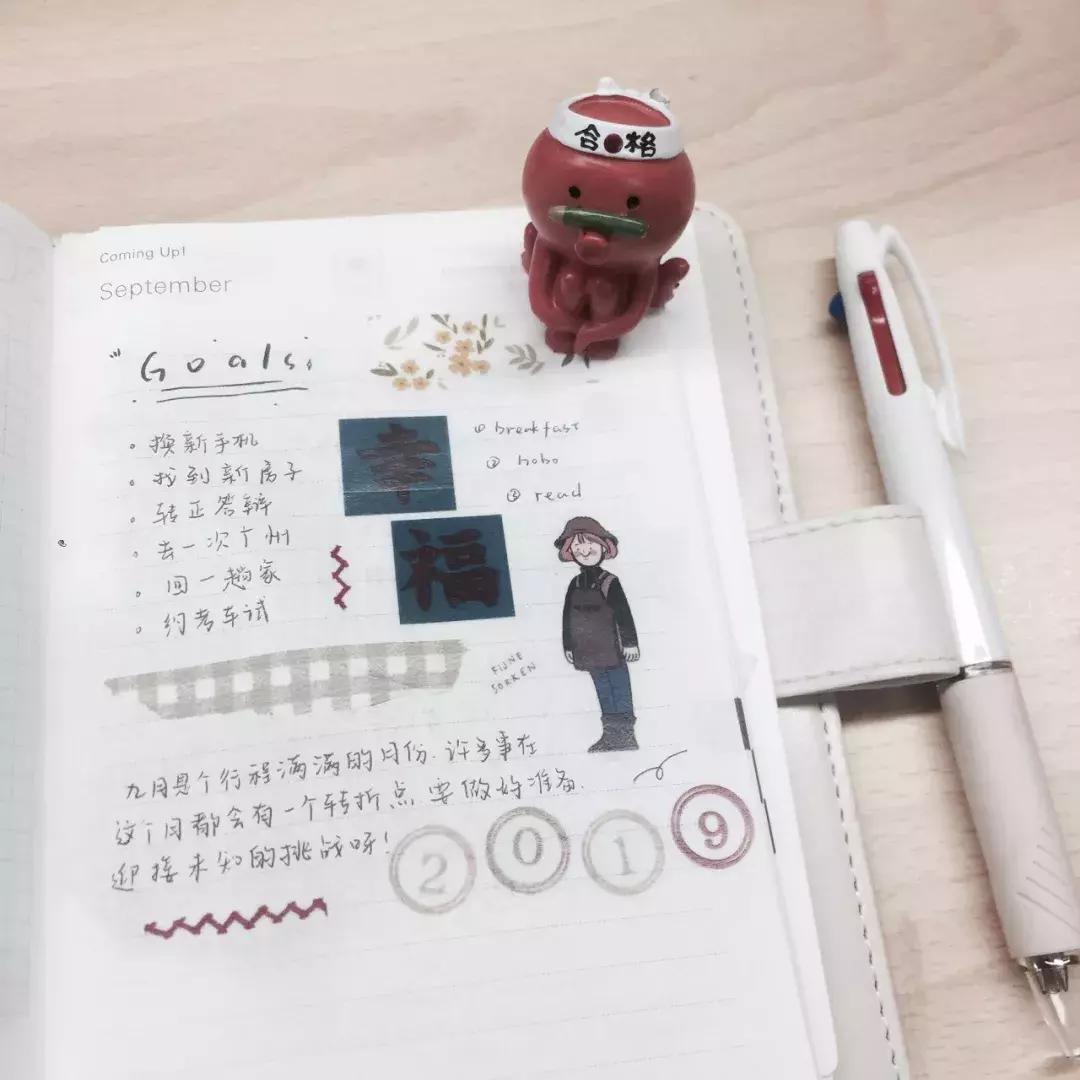 合格
Coming Up!
September
"Goals.
。换新手机
。找到新房子
。转正答辩
。去一次广州
。回一趟家
。约考车试
幸
福
① breakfast
② hobo
③ read
FIJNE
SOKKEN
九月是个行程满满的月份.许多事在
这个月都会有一个转折点 要做好准备.
迎接未知的挑战呀!
2019